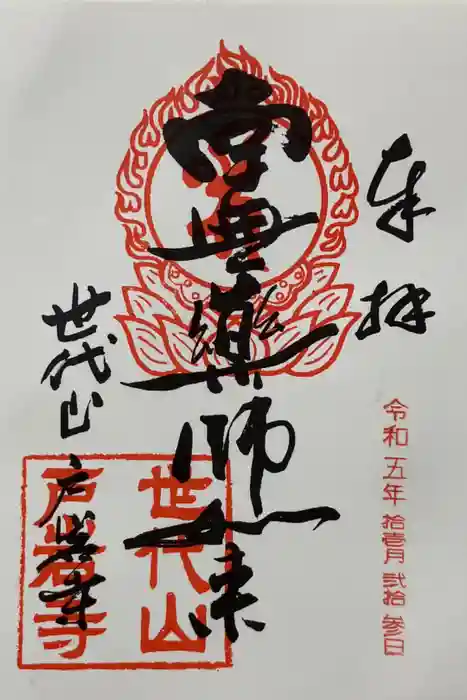 奉拝
令和五年 拾壹月 弐拾 参日
藥師如来
世代山
戸岩寺
世代山
戸岩寺